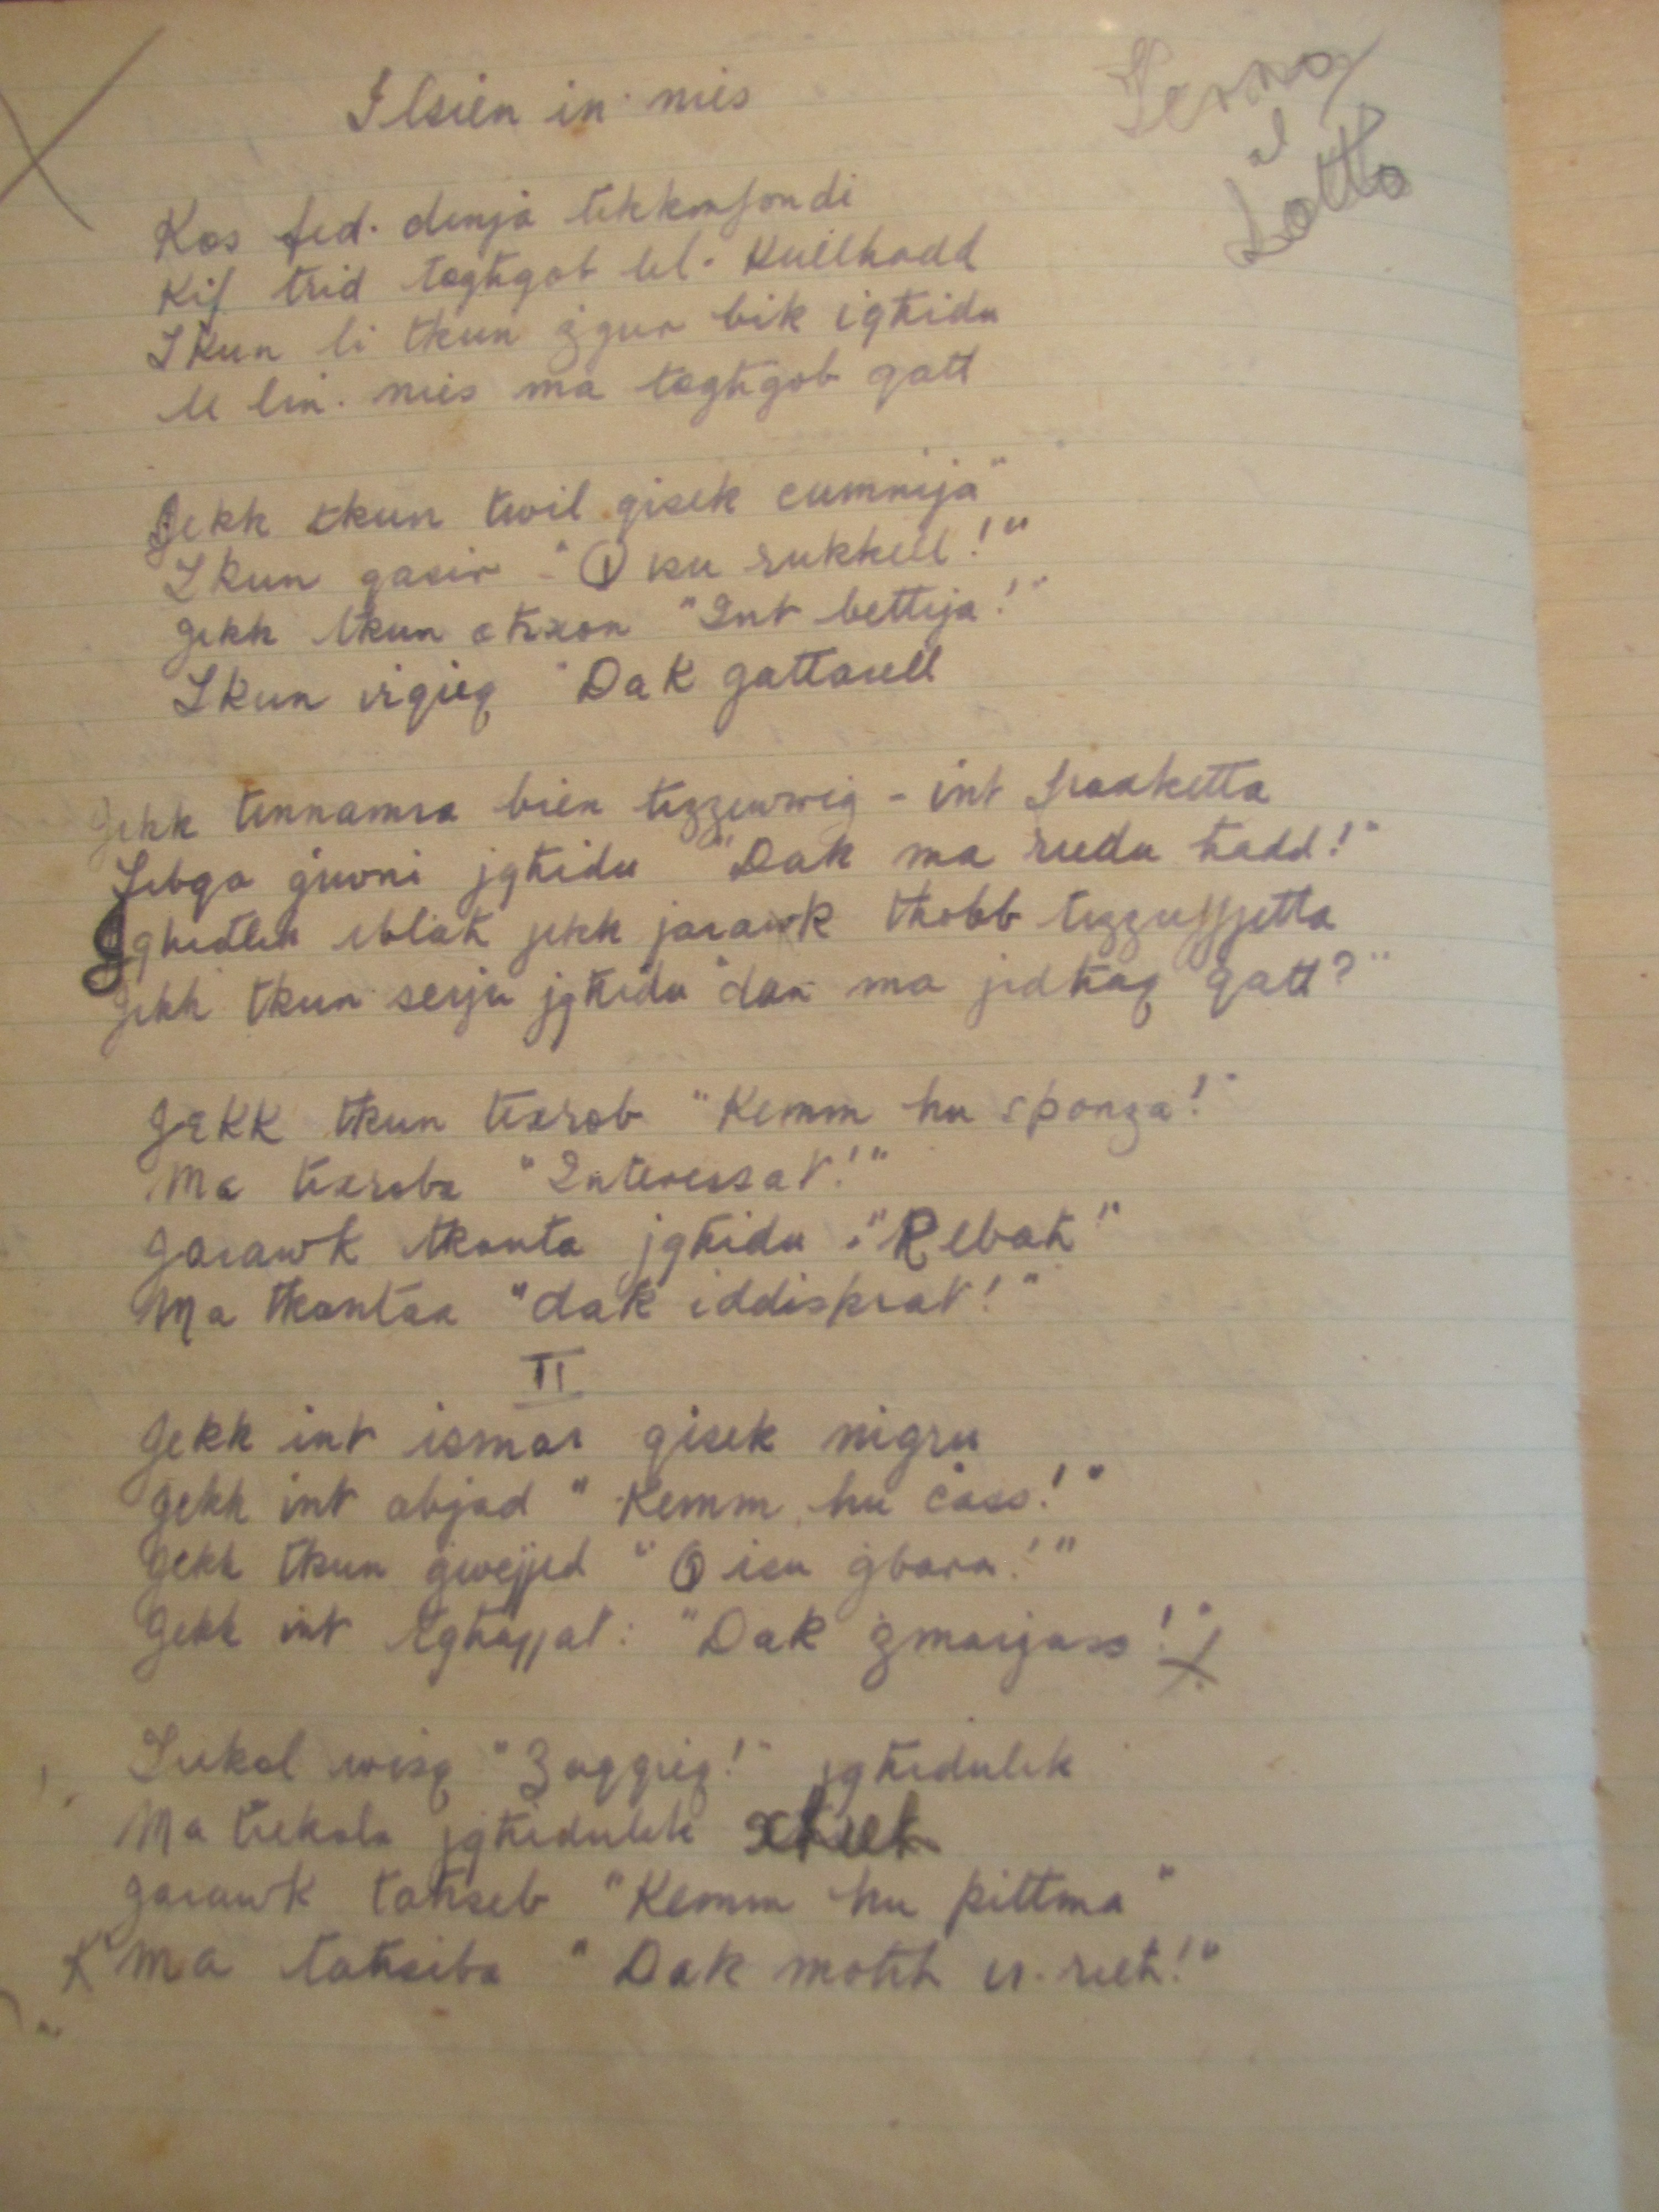 Ilsien in-nies
Terno
al
Lotto
Kos fid-dinja tikkonfondi
Kif trid togħġob lil-kullħadd
Ikun li tkun żgur bik igħidu
U lin-nies ma togħġob qatt
Jekk tkun twil qisek ċumnija"
Ikun qasir - "O isu rukkell!"
Jekk tkun oħxon "Int bettija!"
Ikun irqieq "Dak qattarell
Jekk tinnamra bien tiżżewweġ - int fraxketta
Tibqa ġuvni jgħidu "Dak ma riedu ħadd!"
Jgħidlek iblah jekk jarawk tħobb tiżżuffjetta
Jekk tkun serju jgħidu "dan ma jidħaq qatt?"
Jekk tkun tixrob "Kemm hu sponża!"
Ma tixrobx "Interessat!"
Jarawk tkanta jgħidu: "Rebaħ"
Ma tkantax "dak iddisprat!"
II
Jekk int ismar qisek nigru
Jekk int abjad "Kemm hu ċass!"
Jekk tkun ġwejjed "O isu ġbara!"
Jekk int tgħajjat: "Dak żmarjass!"
Tiekol wisq "Żaqqieq!" jgħidulek
Ma tiekolx jgħidulek
Jarawk taħseb "Kemm hu pittma"
Ma taħsibx "Dak moħħ ir-rieħ!"